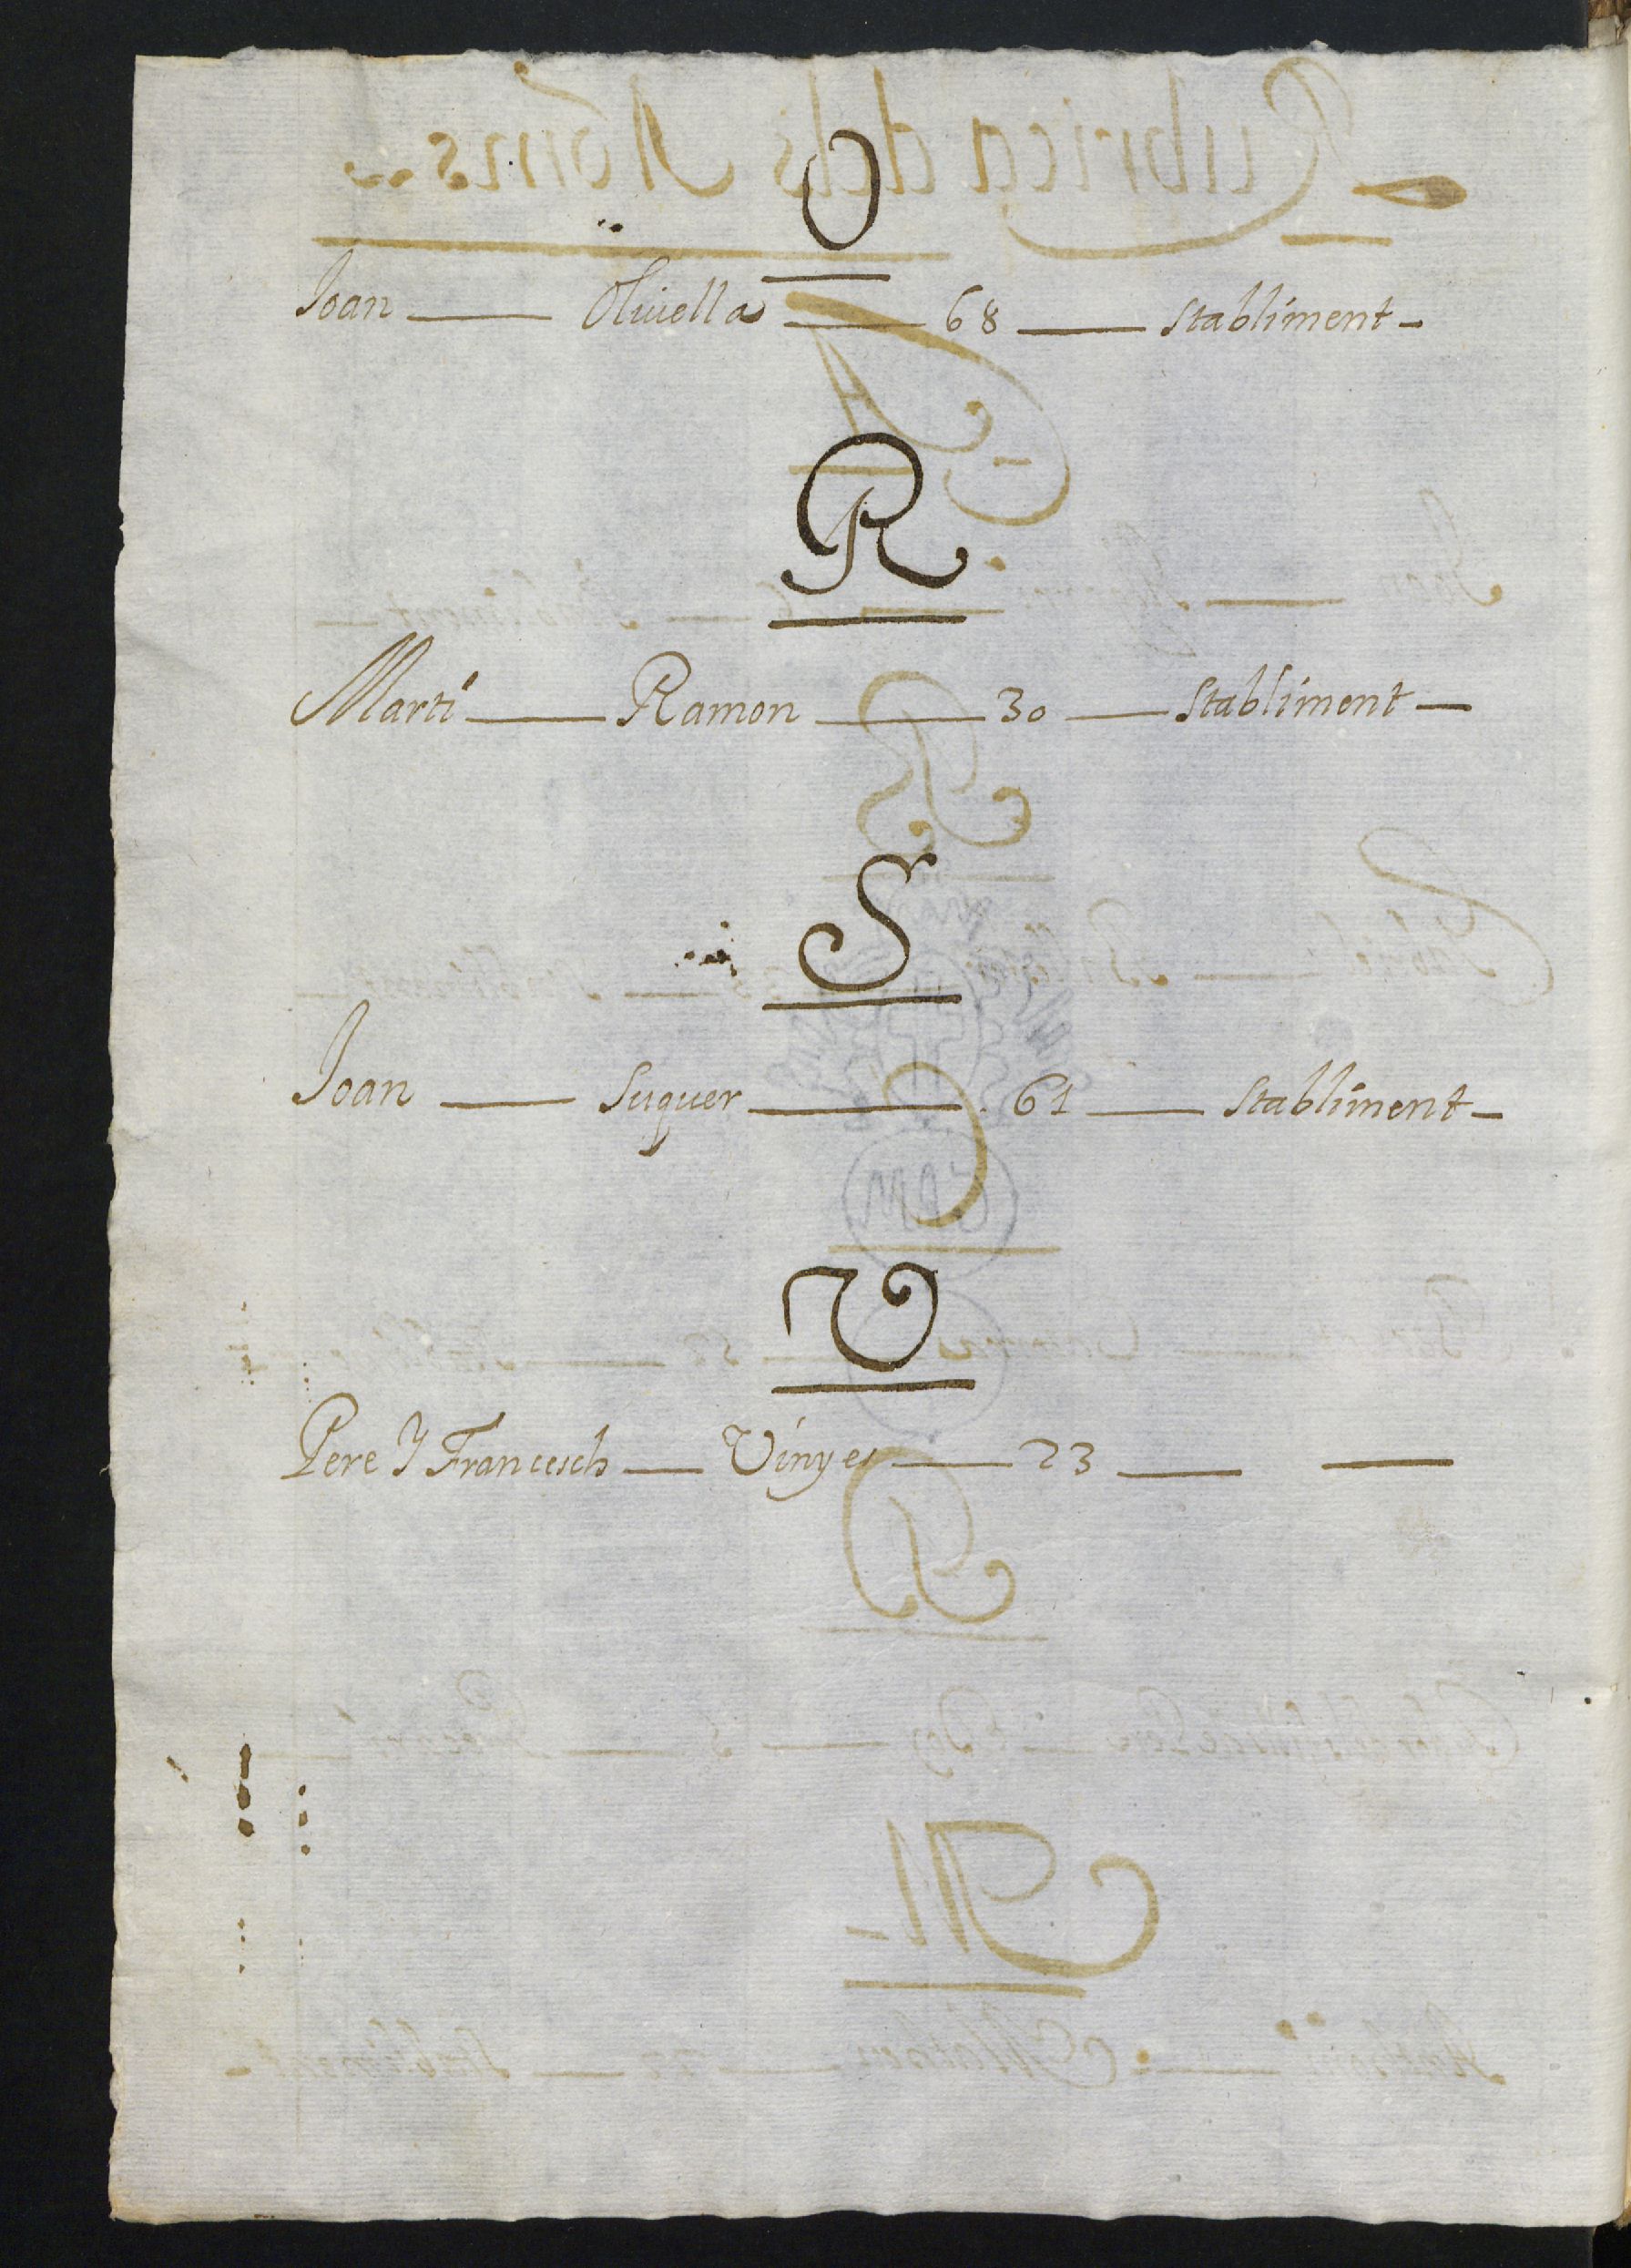 O
Joan — Oliuella — 68 — stabliment -
R
Martí — Ramon — 30 — stabliment —
S
Joan — Suquer — 61 — stabliment -
V
Pere Y Francesch — Vinyes — 23 — —